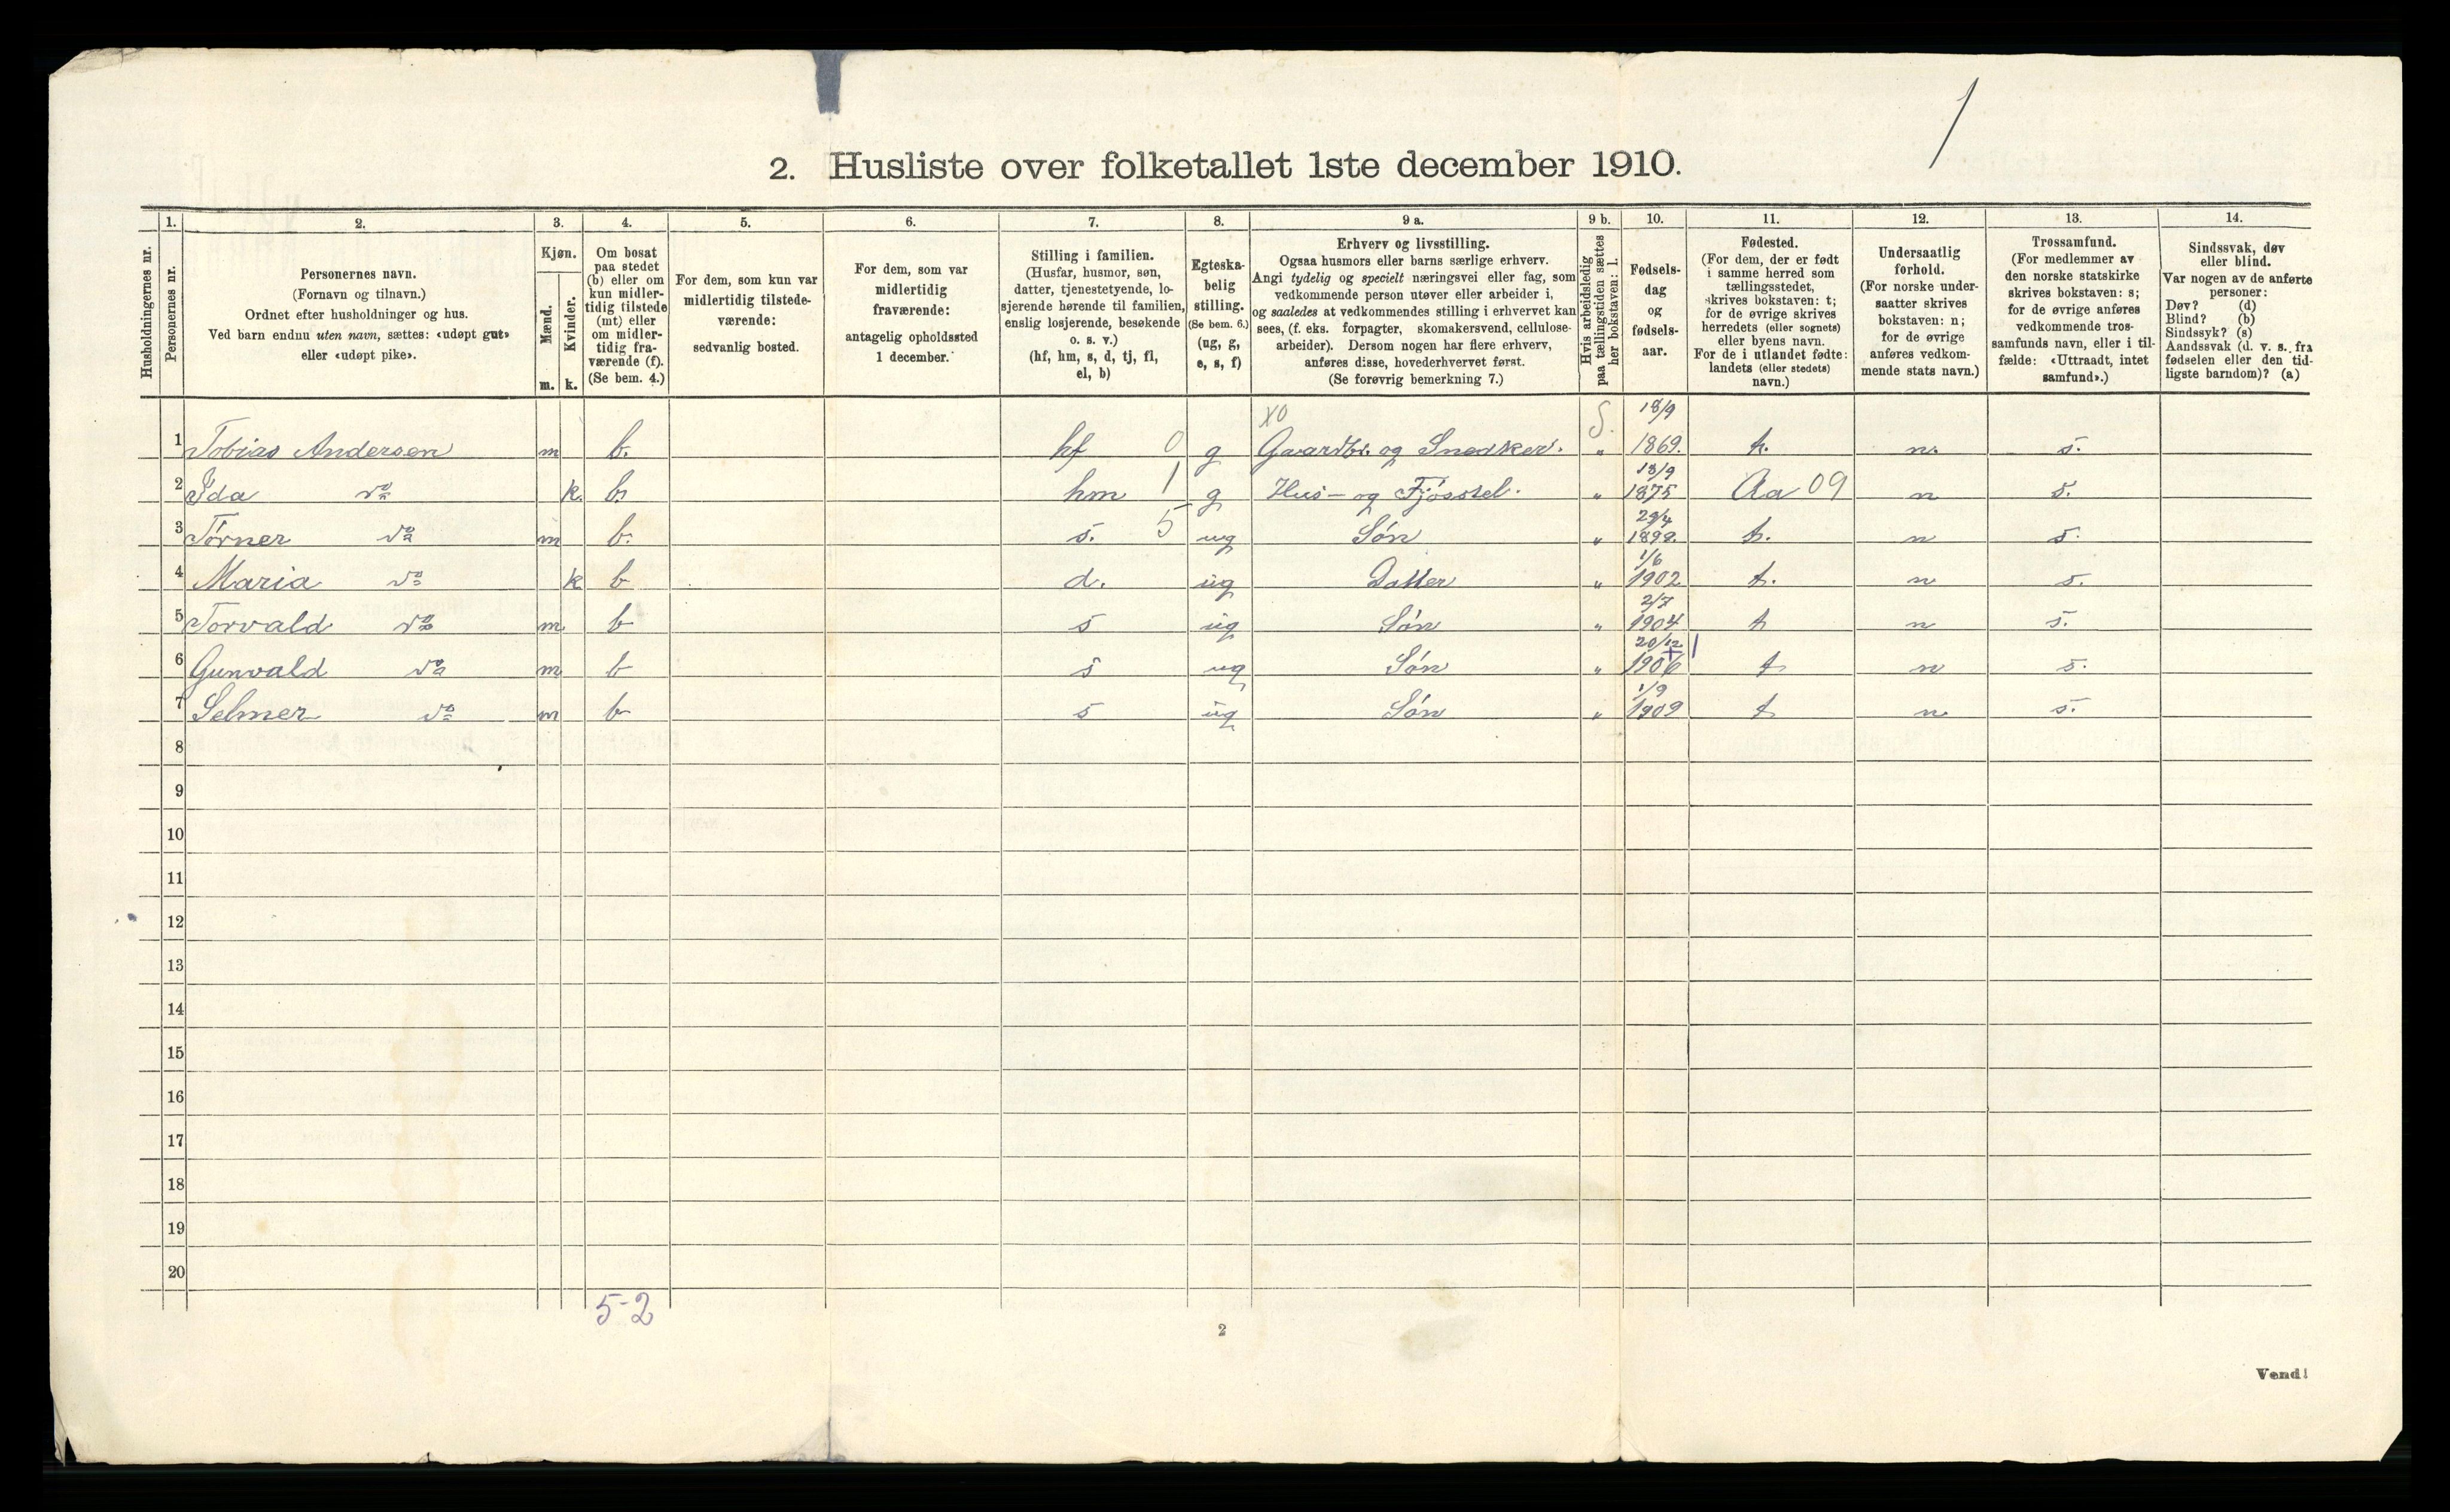 1
2. Husliste over folketallet 1ste december 1910.
Husholdningernes nr.
1. Personernes nr.
2. Personernes navn. (Fornavn og tilnavn.) Ordnet efter husholdninger og hus. Ved barn endnu uten navn, sættes: «udøpt gut» eller «udøpt pike».
3. Kjøn. Mænd. m. Kvinder. k.
4. Om bosat paa stedet (b) eller om kun midlertidig tilstede (mt) eller om midlertidig fraværende (f). (Se bem. 4.)
5. For dem, som kun var midlertidig tilstedeværende: sedvanlig bosted.
6. For dem, som var midlertidig fraværende: antagelig opholdssted 1 december.
7. Stilling i familien. (Husfar, husmor, søn, datter, tjenestetyende, losjerende hørende til familien, enslig losjerende, besøkende o. s. v.) (hf, hm, s, d, tj, fl, el, b)
8. Egteskabelig stilling. (Se bem. 6.) (ug, g, e, s, f)
9 a. Erhverv og livsstilling. Ogsaa husmors eller barns særlige erhverv. Angi tydelig og specielt næringsvei eller fag, som vedkommende person utøver eller arbeider i, og saaledes at vedkommendes stilling i erhvervet kan sees, (f. eks. forpagter, skomakersvend, cellulosearbeider). Dersom nogen har flere erhverv, anføres disse, hovederhvervet først. (Se forøvrig bemerkning 7.)
9 b. Hvis arbeidsledig paa tællingstiden sættes her bokstaven: l.
10. Fødselsdag og fødselsaar.
11. Fødested. (For dem, der er født i samme herred som tællingsstedet, skrives bokstaven: t; for de øvrige skrives herredets (eller sognets) eller byens navn. For de i utlandet fødte: landets (eller stedets) navn.)
12. Undersaatlig forhold. (For norske undersaatter skrives bokstaven: n; for de øvrige anføres vedkommende stats navn.)
13. Trossamfund. (For medlemmer av den norske statskirke skrives bokstaven: s; for de øvrige anføres vedkommende trossamfunds navn, eller i tilfælde: «Uttraadt, intet samfund».)
14. Sindssvak, døv eller blind. Var nogen av de anførte personer: Døv? (d) Blind? (b) Sindssyk? (s) Aandssvak (d. v. s. fra fødselen eller den tidligste barndom)? (a)
X0 S. 18/9
1 Tobias Andersen m b. hf 0 g Gaardbr. og Snedker. " 1869. t. n. s.
13/9
2 Ida do k. b. hm 1 g Hus- og Fjøsstel. " 1875 Aa 09 n s.
29/4
3 Tørner do m b. s. 5 ug Søn " 1898. t. n s.
1/6
4 Maria do k b d. ug Datter " 1902 t. n s.
2/7
5 Torvald do m b s ug Søn " 1904 t n s.
20/12 1
6 Gunvald do m b s ug Søn " 1906 t n s.
1/9
7 Selmer do m b s ug Søn " 1909 t n s.
8
9
10
11
12
13
14
15
16
17
18
19
20
5-2
2
Vend!